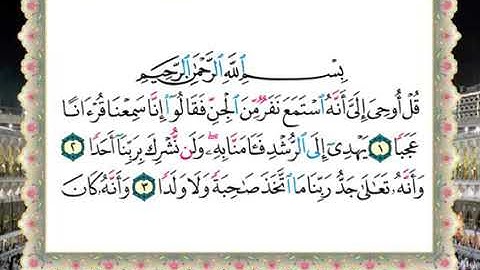 بِسْمِ اللَّهِ الرَّحْمَٰنِ الرَّحِيمِ
قُلْ أُوحِيَ إِلَيَّ أَنَّهُ ٱسْتَمَعَ نَفَرٌ مِّنَ ٱلْجِنِّ فَقَالُوٓا۟ إِنَّا سَمِعْنَا قُرْءَانًا
عَجَبًا ١ يَهْدِىٓ إِلَى ٱلرُّشْدِ فَـَٔامَنَّا بِهِۦ وَلَن نُّشْرِكَ بِرَبِّنَآ أَحَدًا ٢
وَأَنَّهُۥ تَعَٰلَىٰ جَدُّ رَبِّنَا مَا ٱتَّخَذَ صَٰحِبَةً وَلَا وَلَدًا ٣ وَأَنَّهُۥ كَانَ